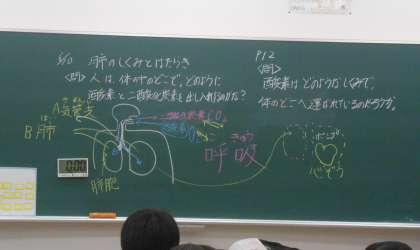 5/10 肺のしくみとはたらき
<問> 人は、体の中のどこで、どのように
酸素と二酸化炭素を出し入れするのか?
A 気管支
B 肺
はい
二酸化炭素CO₂
酸素O₂
こきゅう
呼吸
肺胞
0:00
P12
<問>
酸素はどのようなしくみで、
体のどこへ運ばれているのだろうか。
ポンプ
心ぞう